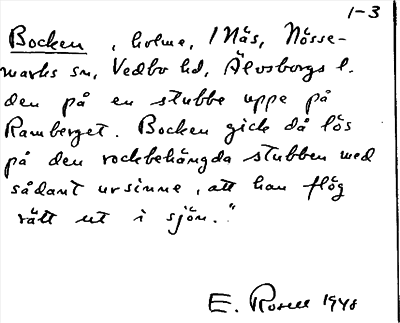 1-3
Bocken, holme, i Näs, Nösse-
marks sn, Vedbo hd, Älvsborgs l.
den på en stubbe uppe på
Ramberget. Bocken gick då lös
på den rockbehängda stubben med
sådant ursinne, att han flög
rätt ut i sjön."
E. Rosell 1948